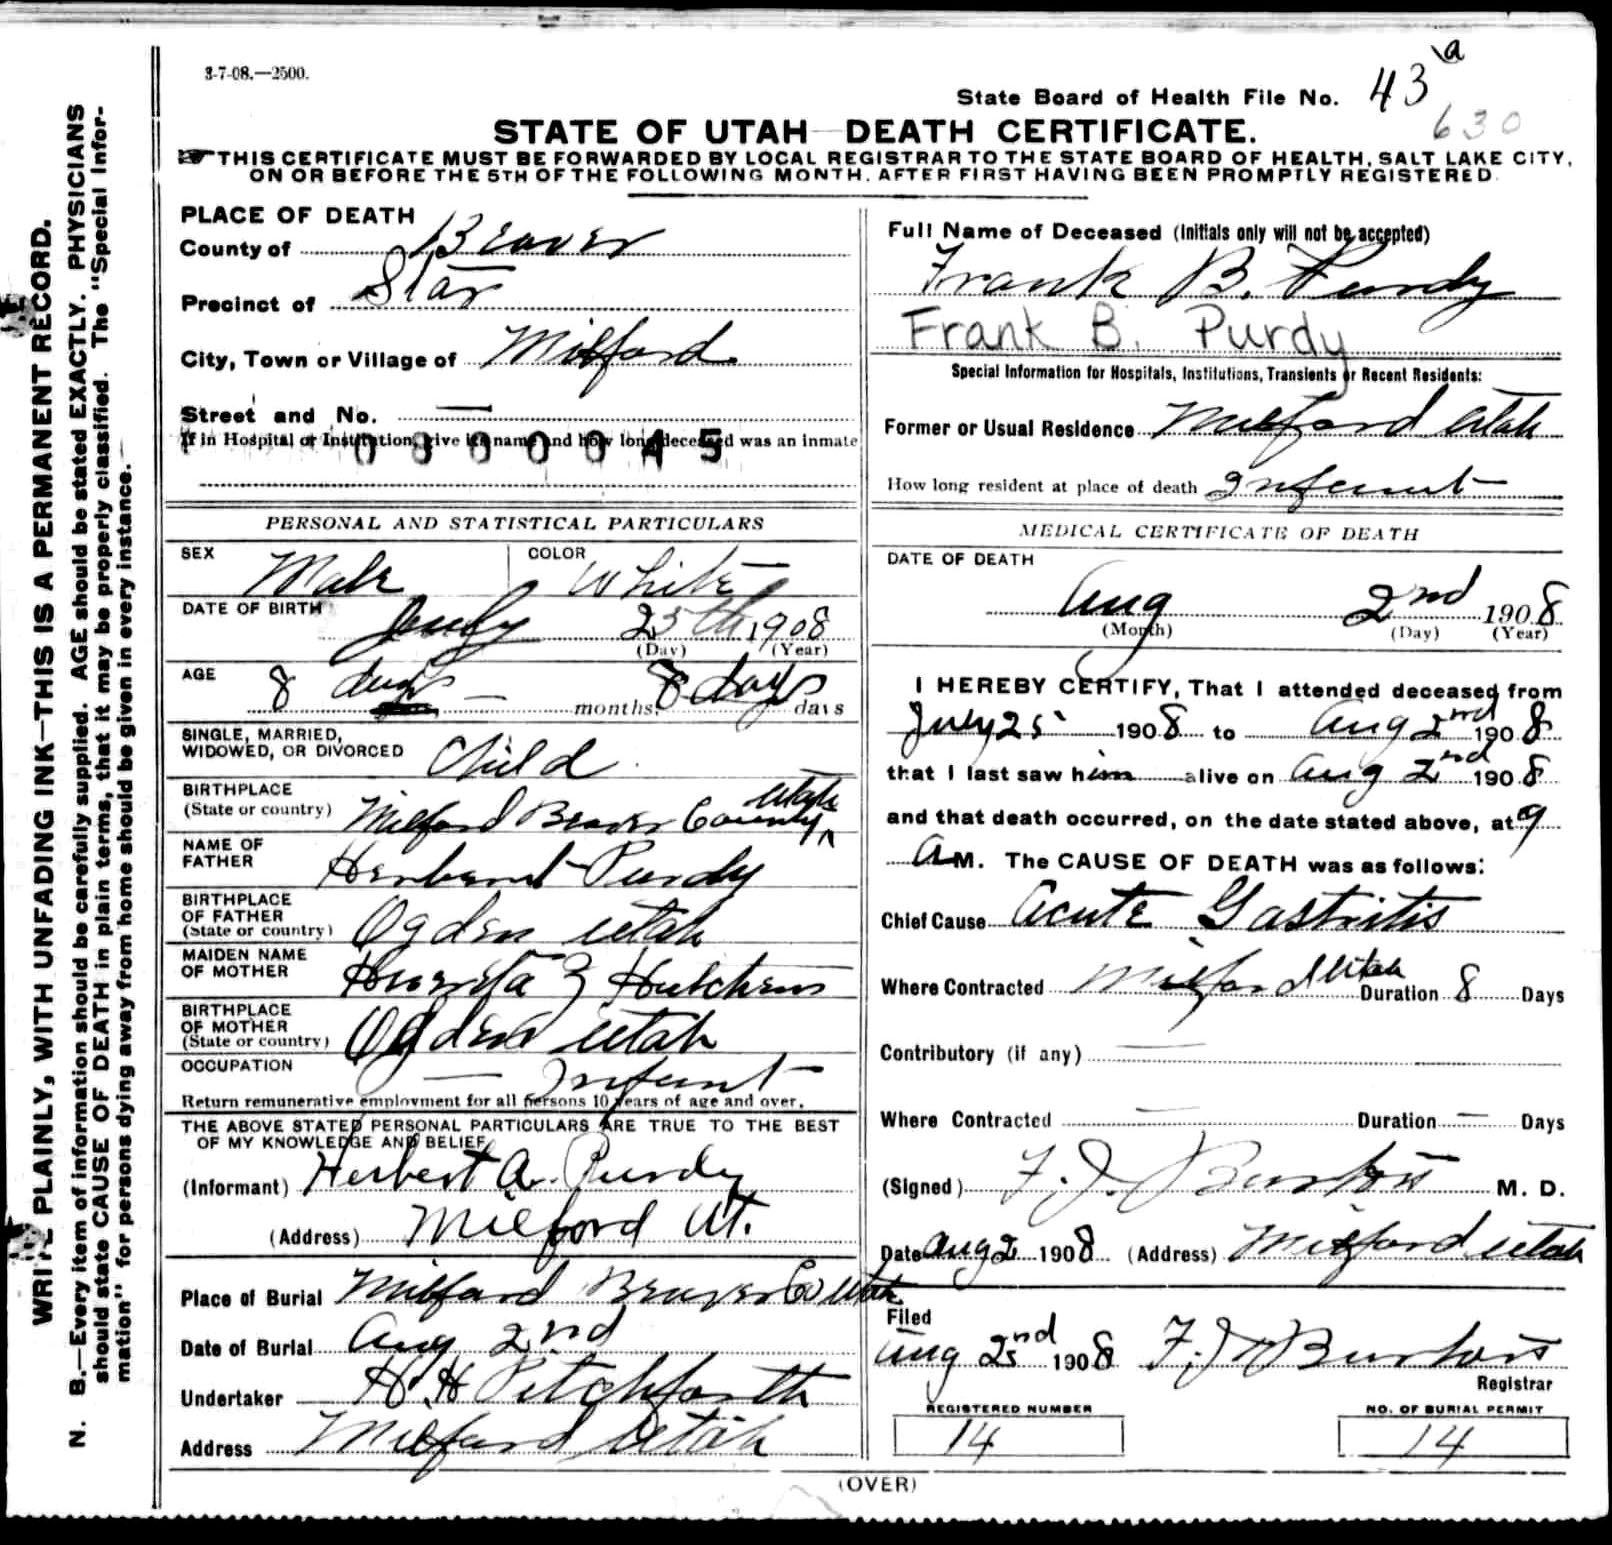 3-7-08.—2500.
State Board of Health File No. 43 a
630
STATE OF UTAH—DEATH CERTIFICATE.
THIS CERTIFICATE MUST BE FORWARDED BY LOCAL REGISTRAR TO THE STATE BOARD OF HEALTH, SALT LAKE CITY,
ON OR BEFORE THE 5TH OF THE FOLLOWING MONTH, AFTER FIRST HAVING BEEN PROMPTLY REGISTERED.
WRITE PLAINLY, WITH UNFADING INK—THIS IS A PERMANENT RECORD.
N. B.—Every item of information should be carefully supplied. AGE should be stated EXACTLY. PHYSICIANS
should state CAUSE OF DEATH in plain terms, that it may be properly classified. The "Special Infor-
mation" for persons dying away from home should be given in every instance.
PLACE OF DEATH
County of Beaver
Precinct of Star
City, Town or Village of Milford
Street and No. —
If in Hospital or Institution, give its name and how long deceased was an inmate
0800045
PERSONAL AND STATISTICAL PARTICULARS
SEX Male COLOR White
DATE OF BIRTH July 25th 1908
(Day) (Year)
AGE 8 days — months, 8 days days
SINGLE, MARRIED,
WIDOWED, OR DIVORCED Child
BIRTHPLACE
(State or country) Milford Beaver County Utah
NAME OF
FATHER Herbert Purdy
BIRTHPLACE
OF FATHER
(State or country) Ogden Utah
MAIDEN NAME
OF MOTHER Hutchens
BIRTHPLACE
OF MOTHER
(State or country) Ogden Utah
OCCUPATION — Infant
Return remunerative employment for all persons 10 years of age and over.
THE ABOVE STATED PERSONAL PARTICULARS ARE TRUE TO THE BEST
OF MY KNOWLEDGE AND BELIEF
(Informant) Herbert A. Purdy
(Address) Milford Ut.
Place of Burial Milford Beaver Co Utah
Date of Burial Aug 2nd
Undertaker H. H Pitchforth
Address Milford Utah
Full Name of Deceased (Initials only will not be accepted)
Frank B. Purdy
Frank B. Purdy
Special Information for Hospitals, Institutions, Transients or Recent Residents:
Former or Usual Residence Milford Utah
How long resident at place of death Infant
MEDICAL CERTIFICATE OF DEATH
DATE OF DEATH
Aug 2nd 1908
(Month) (Day) (Year)
I HEREBY CERTIFY, That I attended deceased from
July 25 1908 to Aug 2nd 1908
that I last saw him alive on Aug 2nd 1908
and that death occurred, on the date stated above, at 9
A M. The CAUSE OF DEATH was as follows:
Chief Cause Acute Gastritis
Where Contracted Milford Utah Duration 8 Days
Contributory (if any) —
Where Contracted — Duration — Days
(Signed) F. J. Burton M. D.
Date Aug 2 1908 (Address) Milford Utah
Filed
Aug 2nd 1908 F. J. Burton
Registrar
REGISTERED NUMBER
14
NO. OF BURIAL PERMIT
14
(OVER)